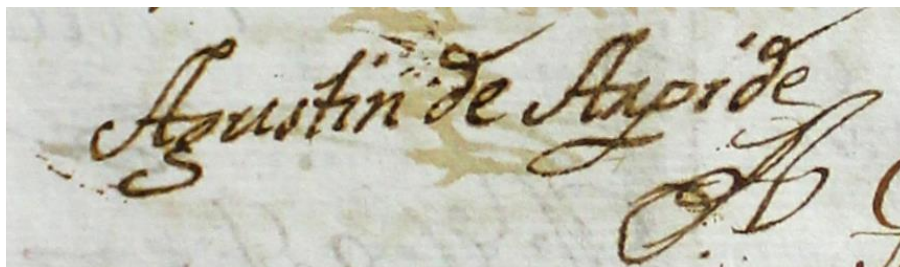 Agustin de Axpide